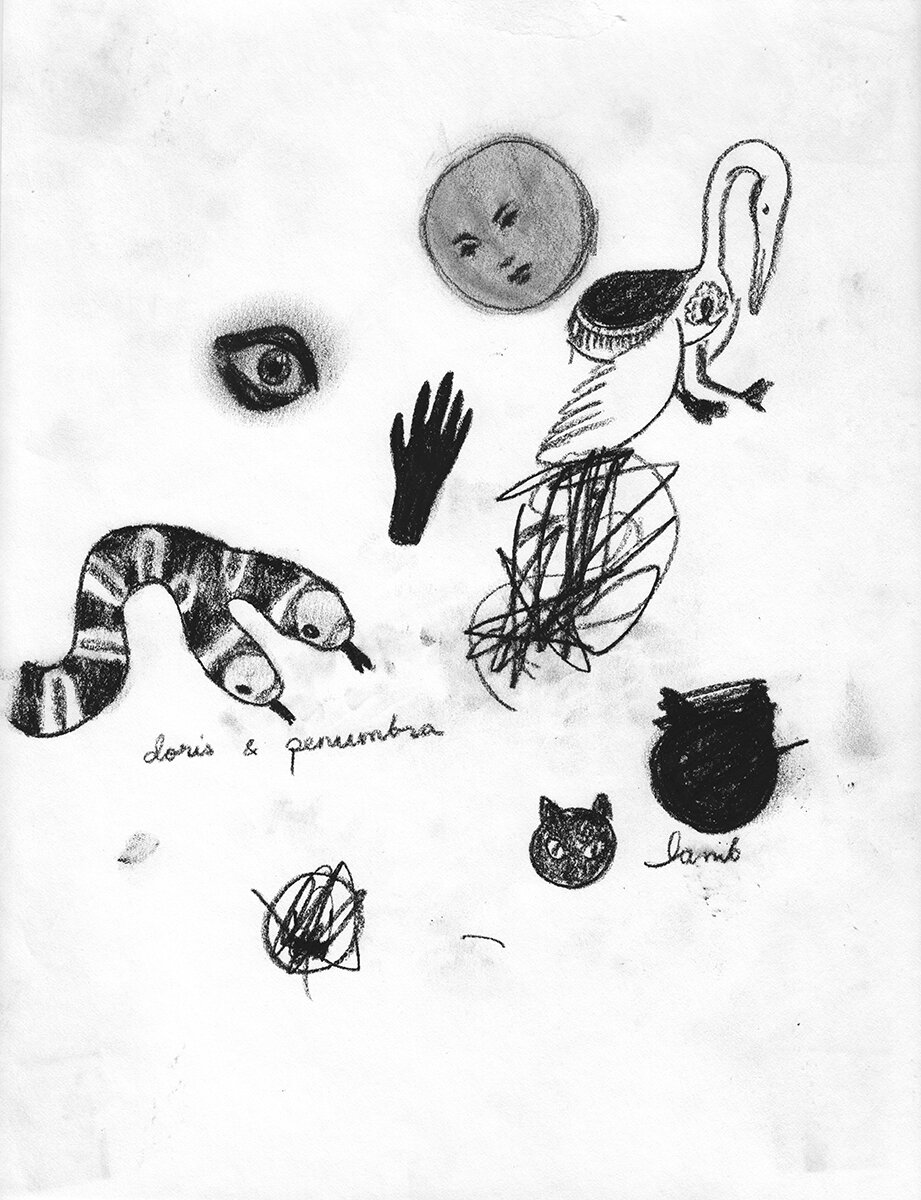 doris & penumbra
lamb